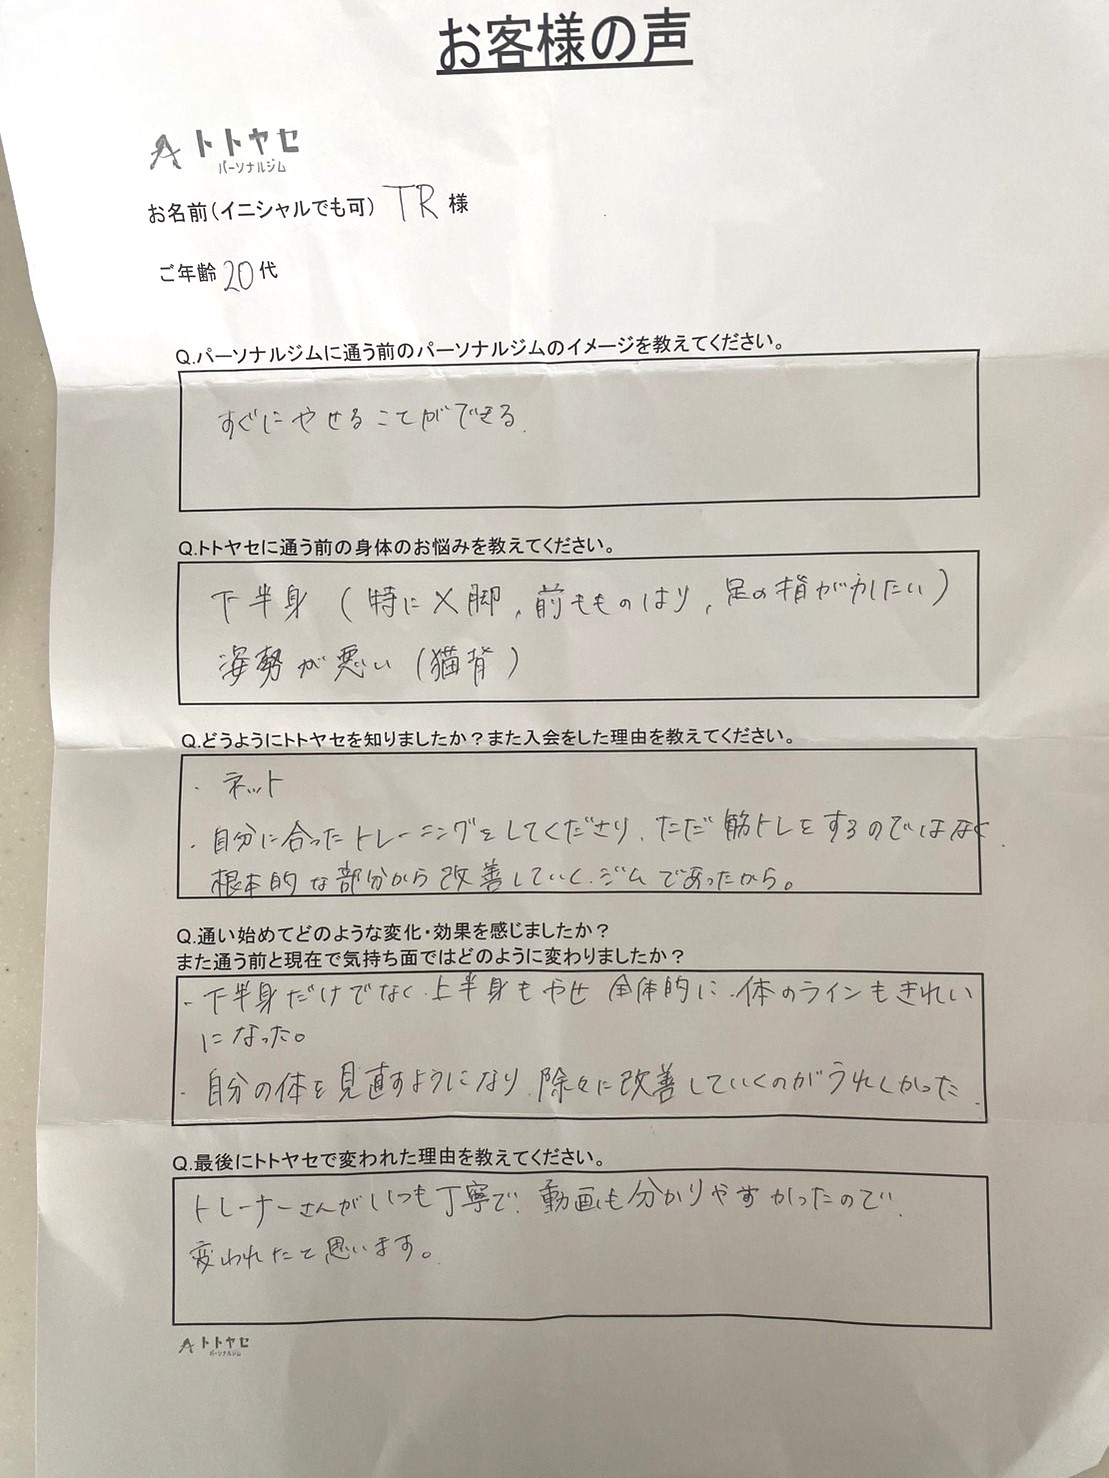 お客様の声
トトヤセ
パーソナルジム
お名前(イニシャルでも可) TR 様
ご年齢 20代
Q.パーソナルジムに通う前のパーソナルジムのイメージを教えてください。
すぐにやせることができる.
Q.トトヤセに通う前の身体のお悩みを教えてください。
下半身(特にX脚,前もものはり,足の指がかたい)
姿勢が悪い(猫背)
Q.どうようにトトヤセを知りましたか?また入会をした理由を教えてください。
・ネット
・自分に合ったトレーニングをしてくださり、ただ筋トレをするのではなく、
根本的な部分から改善していくジムであったから。
Q.通い始めてどのような変化・効果を感じましたか?
また通う前と現在で気持ち面ではどのように変わりましたか?
・下半身だけでなく、上半身もやせ 全体的に、体のラインもきれい
になった。
・自分の体を見直すようになり、除々に改善していくのがうれしかった.
Q.最後にトトヤセで変われた理由を教えてください。
トレーナーさんがいつも丁寧で、動画も分かりやすかったので、
変われたと思います。
トトヤセ
パーソナルジム